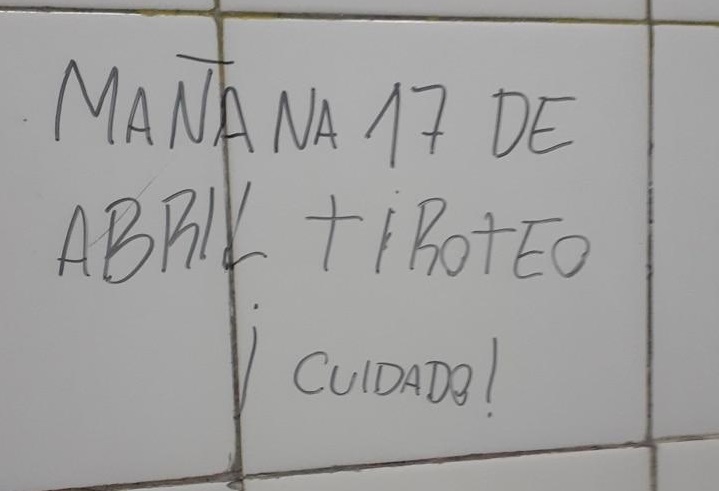 MAÑANA 17 DE
ABRIL TIROTEO
¡CUIDADO!